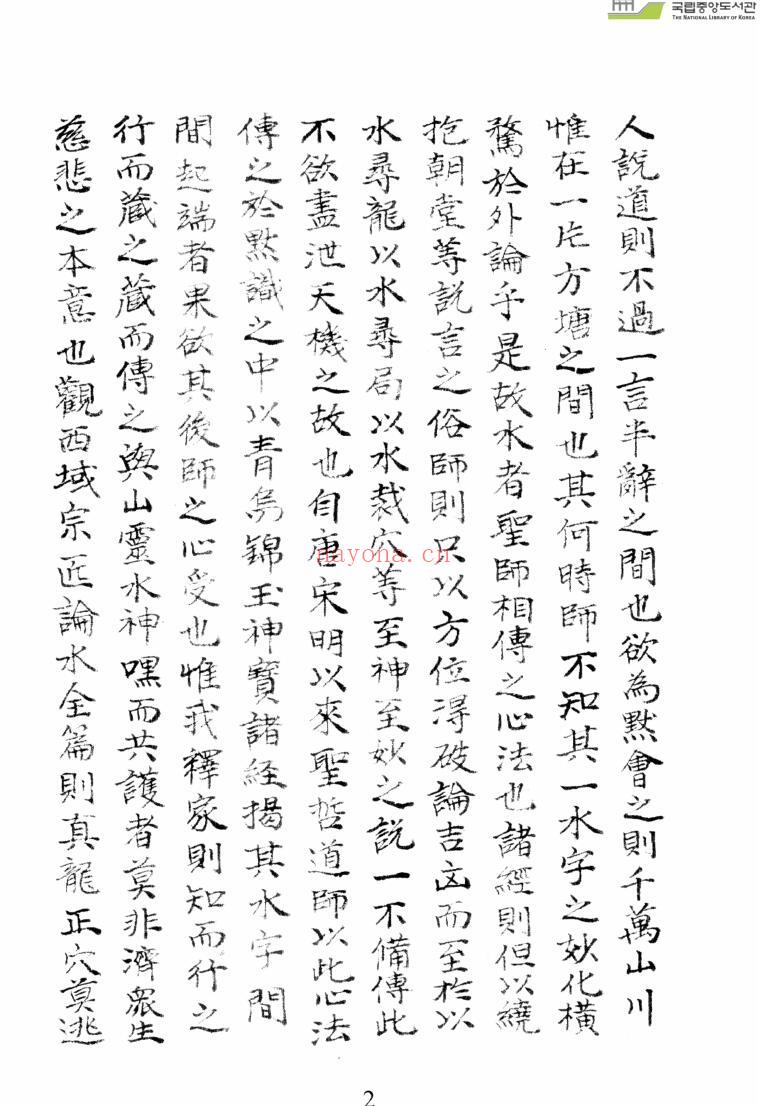 국립중앙도서관
THE NATIONAL LIBRARY OF KOREA
人說道則不過一言半辭之間也欲為默會之則千萬山川
惟在一片方塘之間也其何時師不知其一水字之妙化橫
騖於外論乎是故水者聖師相傳之心法也諸經則但以繞
抱朝堂等說言之俗師則只以方位得破論吉凶而至於以
水尋龍以水尋局以水裁穴等至神至妙之說一不備傳此
不欲盡泄天機之故也自唐宋明以來聖哲道師以此心法
傳之於默識之中以青烏錦玉神寶諸経揭其水字間
間起端者果欲其後師之心受也惟我釋家則知而行之
行而藏之藏而傳之與山靈水神嘿而共護者莫非濟眾生
慈悲之本意也觀西域宗匠論水全篇則真龍正穴莫逃
nayona.cn
2